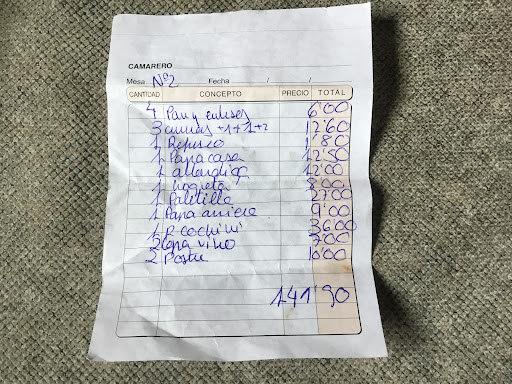 CAMARERO
Mesa Nº2 Fecha / /
CANTIDAD CONCEPTO PRECIO TOTAL
4 Pan y 6'00
3 +1+1+2 12'60
1 Refresco 1'80
1 Papa casa 12'50
1 12'00
1 8'00
1 Paletilla 27'00
1 Papa 9'00
1 P cochini 36'00
2 Copa vino 7'00
2 Postre 10'00
141'90